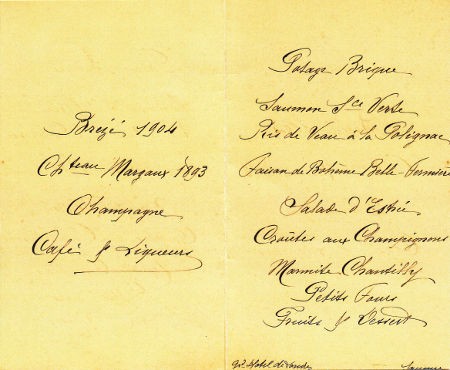 Brézé 1904
Chteau Margaux 1893
Champagne
Café & Liqueurs
Potage Brigue
Saumon Sce Verte
Ris de Veau à la Polignac
Faisan de Bohême Belle-Fermière
Salade d'Estrée
Croûtes aux Champignons
Marmite Chantilly
Petits Fours
Fruits & Dessert
Gd Hotel
Saumur